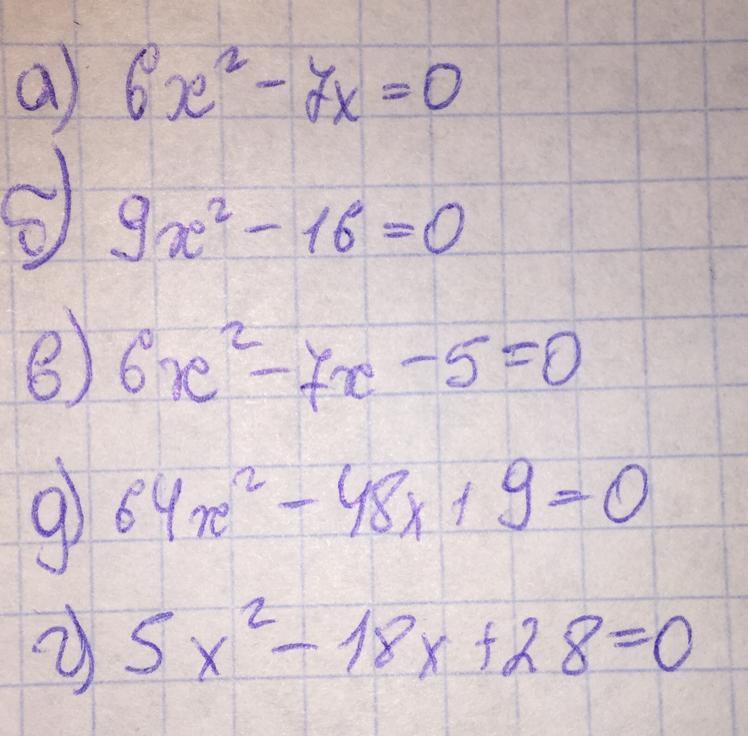 а) 6x² - 7x = 0
б) 9x² - 16 = 0
в) 6x² - 7x - 5 = 0
д) 64x² - 48x + 9 = 0
г) 5x² - 18x + 28 = 0